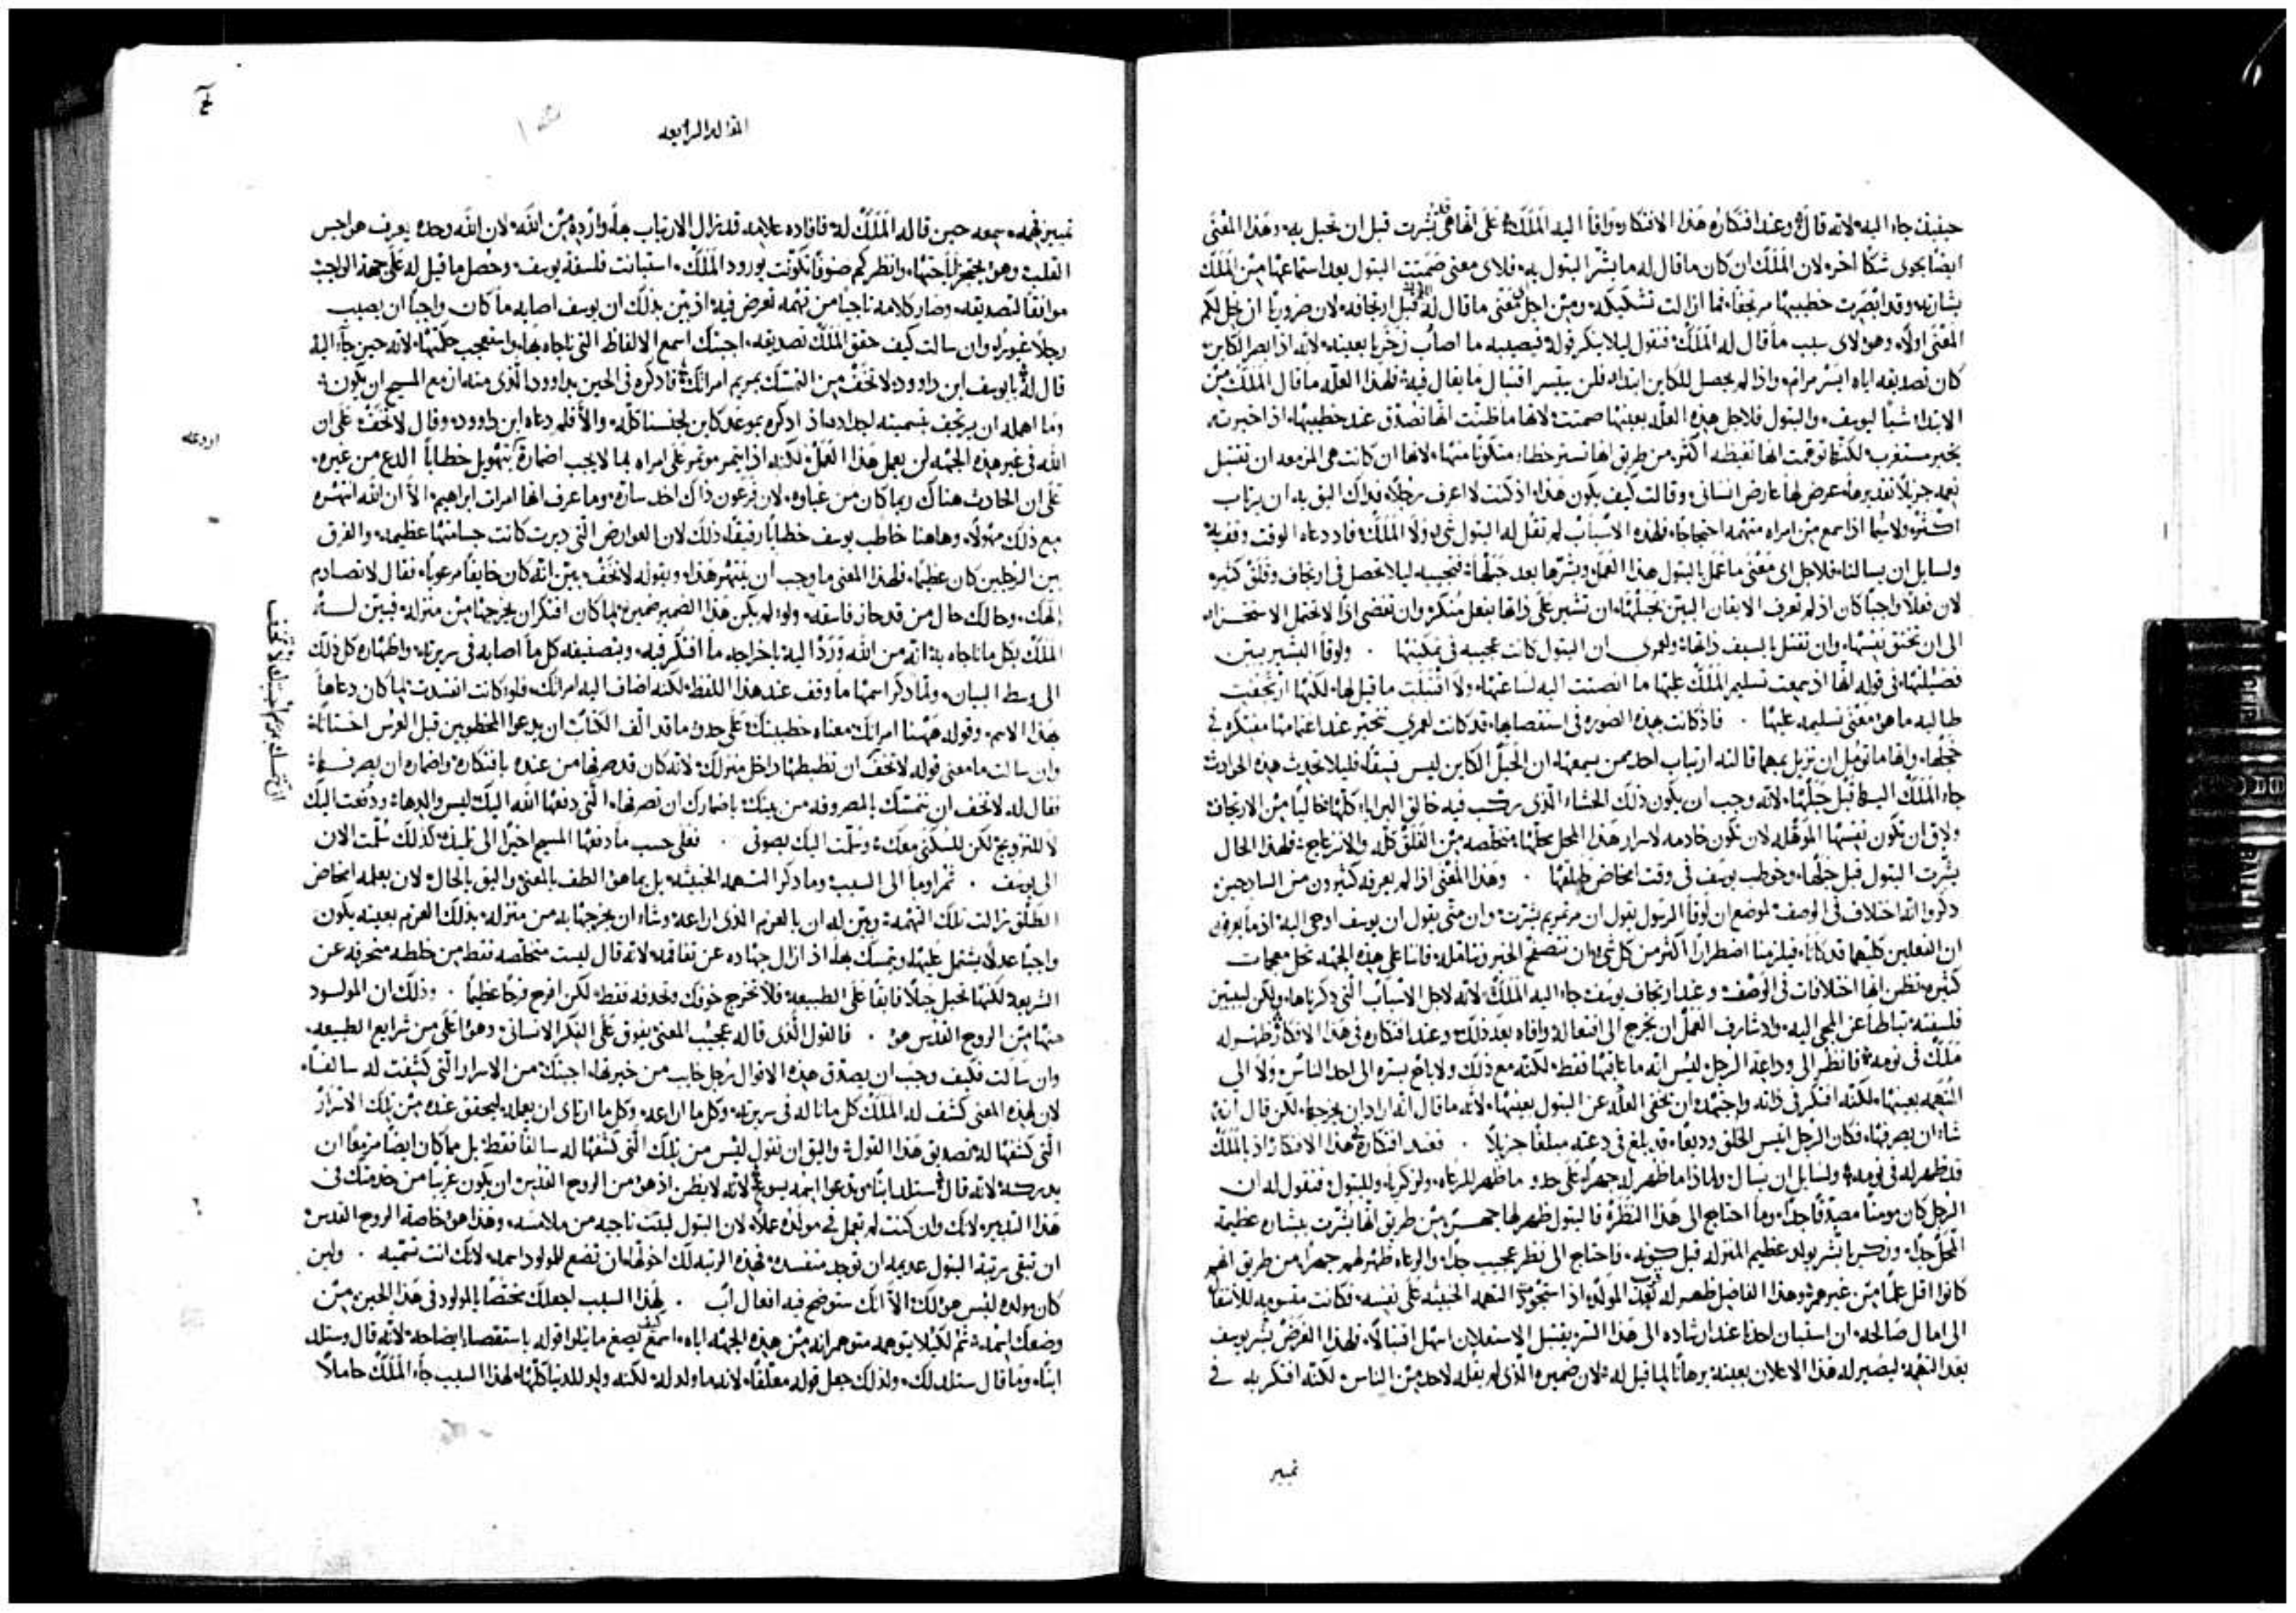 حينيذ جاء اليه لانه قال وعند افتكاره هذا الافتكار وافا اليه الملاك على انها هي بشرت قبل ان تحبل به وهذا المعنى
ايضا يحوى شكا اخر لان الملاك ان كان ما قال له ما بشر البتول به فلاى معنى صمتت البتول بعد استماعها من الملاك
بشارته وقد ابصرت خطيبها مرتجفا فما ازالت تشككه ومن اجل معنى ما قال له قبل ارتجافه لان ضروريا ان نحل لكم
المعنى اولا وهو لاى سبب ما قال له الملاك فنقول ليلا ينكر قوله فيصيبه ما اصاب زخريا بعينه لانه اذا ابصر الكاين
كان تصديقه اياه ايسر مرام واذا لم يحصل للكاين ابتداء فلن يتيسر اقتبال ما يقال فيه فلهذا العله ما قال الملاك من
الابتداء شيا ليوسف والبتول فلاجل هذه العله بعينها صمتت لانها ما ظنت انها تصدق عند خطيبها اذا اخبرت
بخبر مستغرب لكنها توهمت انها تغيظه اكثر من طريق انها تستر خطاء متكونا منها لانها ان كانت هى المزمعه ان تقتبل
نعمه جزيلا تقديرها عرض لها عارض انسانى وقالت كيف يكون هذا اذ كنت لا اعرف رجلا فذاك اليق به ان يرتاب
اكثر ولا سيما اذا سمع من امراه متهمه احتجاجا فلهذه الاسباب لم تقل له البتول شى ولا الملاك فاد دعاه الوقت وقف به
ولسايل ان يسالنا فلاجل اى معنى ما عمل بالبتول هذا العمل وبشرها بعد حبلها فنجيبه ليلا تحصل فى ارتجاف وقلق كثير
لان فعلا واجبا كان اذ لم تعرف الايقان البين بحبلها ان تشير على ذاتها بفعل منكر وان تفضى اذا لا تحتمل الاستحزاء
الى ان تخنق نفسها وان تقتل بالسيف ذاتها ولعمرى ان البتول كانت عجيبه فى تمكينها . ولوقا البشير يبين
فضيلتها فى قوله انها اذ سمعت تسليم الملاك عليها ما انصتت اليه لساعتها ولا اقتبلت ما قيل لها لكنها ارتجفت
طالبه ما هو معنى تسليمه عليها . فاذ كانت بهذه الصوره فى استقصايها قد كانت لعمرى تتحير عند اغتمامها مفتكره فى
خجلها وانها ما تومل ان تزيل بمهما قالته ارتياب احد ممن يسمعها ان الحبل الكاين ليس فسقا فليلا تحدث هذه الحوادث
جاء الملاك اليها قبل حبلها لانه وجب ان يكون ذلك الحشاء الذى ركب فيه خالق البرايا كلها خاليا من الارتجاف
ولاق ان تكون نفسها الموهله لان تكون خادمه لاسرار هذا المحل محلها متخلصه من القلق كله والانزعاج فلهذا الحال
بشرت البتول قبل حبلها وخوطب يوسف فى وقت امخاض طلقها . وهذا المعنى اذا لم يعرفه كثيرون من الساذجين
ذكروا انه اختلاف فى الوصف لموضع ان لوقا الرسول يقول ان مرتمريم بشرت وان متى يقول ان يوسف اوحى اليه اذ ما يعرفون
ان الفعلين كليهما قد كانا فيلزمنا اضطرارا اكثر من كل شى ان نتصفح الخبر ونتامله فاننا على هذه الجهه نحل معميات
كثيره تظن انها اختلافات فى الوصف وعند ارتجاف يوسف جاء اليه الملاك لانه لاجل الاسباب التى ذكرناها ولكن ليبين
فلسفته تباطا عن المجى اليه واذ شارف العمل ان يخرج الى انفعاله وافاه بعد ذلك وعند افتكاره فى هذا الافكار ظهر له
ملاك فى نومه فانظر الى وداعة الرجل ليس انه ما عاقبها فقط لكنه مع ذلك ولا باح بسره الى احد الناس ولا الى
المتهمه بعينها لكنه افتكر فى ذاته واجتهد ان يخفى العله عن البتول بعينها لانه ما قال انه اراد ان يخرجها لكن قال انه
شاء ان يصرفها فكان الرجل انيس الخلق وديعا قد بلغ فى دعته مبلغا جزيلا . فعند افتكاره هذا الافتكار اذ بالملاك
قد ظهر له فى نومه ولسايل ان يسال ولماذا ما ظهر له جهرا على حدو ما ظهر للرعاه ولزكريا وللبتول فنقول له ان
الرجل كان مومنا مصدقا جدا وما احتاج الى هذا النظرة فالبتول ظهر لها جهرا من طريق انها بشرت ببشاره عظيمة
المحل جدا وزكريا بشر بولد عظيم المنزله قبل كونه فاحتاج الى نظر عجيب جدا والرعاه ظهر لهم جهرا من طريق انهم
كانوا اقل علما من غيرهم وهذا الفاضل ظهر له بعد المولد اذ استحوذت التهمه الخبيثه على نفسه فكانت مقسومه للانتقال
الى امال صالحه ان استبان احد عند ارشاده الى هذا السر يقتبل الاستعلان اسهل اقتبالا فلهذا الغرض بشر يوسف
بعد التهمه ليصير له هذا الاعلان بعينه برهانا لما قيل له لان ضميره الذى لم يقله لاحد من الناس لكنه افتكر به فى
تمييز
المقاله الرابعه
تمييز فهمه سمعه حين قاله الملاك له فافاده علامه قد تزال الارتياب بها وارده من الله لان الله وحده يعرف هواجس
القلب وهو يختبر لباحتها وانظر كم صنوفا تكونت بورود الملاك استبانت فلسفة يوسف وحصل ما قيل له على جهة الواجب
موافقا لتصديقه وصار كلامه ناجيا من تهمه تعرض فيه اذ بين بذلك ان يوسف اصابه ما كان واجبا ان يصيب
رجلا غيورا وان سالت كيف حقق الملاك تصديقه اجبتك اسمع الالفاظ التى ناجاه بها واستعجب حكمتها لانه حين جاء اليه
قال له يا يوسف ابن داوود لا تخف من التمسك بمريم امراتك فاذكره فى الحين بداوود الذى منه ازمع المسيح ان يكون
وما اهمله ان يرتجف بتسميته اجداده اذ اذكره بموعد كاين لجنسنا كله والا فلم دعاه ابن داوود وقال لا تخف على ان
الله فى غير هذه الجهه لن يعمل هذا العمل لكنه اذا ايتمر موتمر على امراه بما لا يجب اضماره بتهويل خطابا الدع من غيره
على ان الحادث هناك ربما كان من غباوه لان فرعون ذاك اخذ ساره وما عرف انها امراة ابراهيم الا ان الله انتهره
مع ذلك مهولا وهاهنا خاطب يوسف خطابا رفيقا ذلك لان العوارض التى دبرت كانت جسامتها عظيمه والفرق
بين الرجلين كان عظيما فلهذا المعنى ما وجب ان ينتهر هذا وبقوله لا تخف بين انه كان خايفا مرعوبا فقال لا تصادم
الهك وحالك حال من قد حاز فاسقه ولو لم يكن هذا الضمير ضميره لما كان افتكر ان يخرجها من منزله فبين له
الملاك بكل ما ناجاه به انه من الله ورد اليه باخراجه ما افتكر فيه وبتصنيفه كل ما اصابه فى سريرته واظهاره كل ذلك
الى وسط البيان ولما ذكر اسمها ما وقف عند هذا اللفظ لكنه اضاف اليه امراتك فلو كانت افسدت لما كان دعاها
هذا الاسم وقوله ههنا امراتك معناه خطيبتك على حدو ما قد الف الكتاب ان يدعوا المخطوبين قبل العرس اختانا
وان سالت ما معنى قوله لا تخف ان تضبطها داخل منزلك لانه كان قد صرفها من عنده بافتكاره واضماره ان يصرفها
فقال له لا تخف ان تتمسك بالمصروفه من بيتك باضمارك ان تصرفها التى دفعها الله اليك ليس والدها ودفعت اليك
لا للتزويج لكن للسكنى معك وسلمت اليك بصوتى . فعلى حسب ما دفعها المسيح اخيرا الى تلميذه كذلك سلمت الان
الى يوسف . ثم اوما الى السبب وما ذكر التهمه الخبيثه بل بما هو الطف بالمعنى واليق بالحال لان بعلمه امخاض
الطلق زالت تلك التهمه وبين له ان بالعزم الذى اراعه وشاء ان يخرجها به من منزله بذلك العزم بعينه يكون
واجبا عدلا يشتمل عليها ويتمسك بها اذ ازال جهاده عن تفاقمه لانه قال ليست متخلصه فقط من خلطه منحرفه عن
الشريعه لكنها تحبل حبلا فايقا على الطبيعه فلا تخرج خوفك وتحدفه فقط لكن افرح فرحا عظيما . وذلك ان المولود
منها من الروح القدس هو . فالقول الذى قاله عجيب المعنى يفوق على الفكر الانسانى وهو اعلى من شرايع الطبيعه
وان سالت فكيف وجب ان يصدق هذه الاقوال رجل خايب من خبرتها اجبتك من الاسرار التى كشفت له سالفا
لان لهذه المعنى كشف له الملاك كل ما ناله فى سريرته وكل ما اراعه وكل ما ارتاى ان يعمله ليحقق عنده من تلك الاسرار
التى كشفها له تصديق هذا القول واليق ان نقول ليس من تلك التى كشفها له سالفا فقط بل مما كان ايضا مزمعا ان
يدركه لانه قال ستلد ابنا وتدعوا اسمه يسوع لانه لا يظن اذ هو من الروح القدس ان يكون غريبا من خدمتك فى
هذا التدبير لانك وان كنت لم تعمل فى مولده عملا لان البتول لبثت ناجيه من ملامسه وهذا هو خاصة الروح القدس
ان تبقى مرتبة البتول عديمه ان توجد منفسده فهذه الرتبه لك اخولها ان تضع للمولود اسمه لانك انت تسميه . ولين
كان مولده ليس هو لك الا انك ستوضح فيه افعال اب . لهذا السبب اجعلك مختصا بالمولود فى هذا الحين من
وضعك اسمه ثم لكيلا يتوهمه متوهم انه من هذه الجهه اياه اسمع كيف يصغ ما يتلوا قوله باستقصاء ايضاحه لانه قال وستلد
ابنا وما قال ستلد لك ولذلك جعل قوله معلقا لانه ما ولد له لكنه ولد للدنيا كلها لهذا السبب جاء الملاك حاملا
اراعه